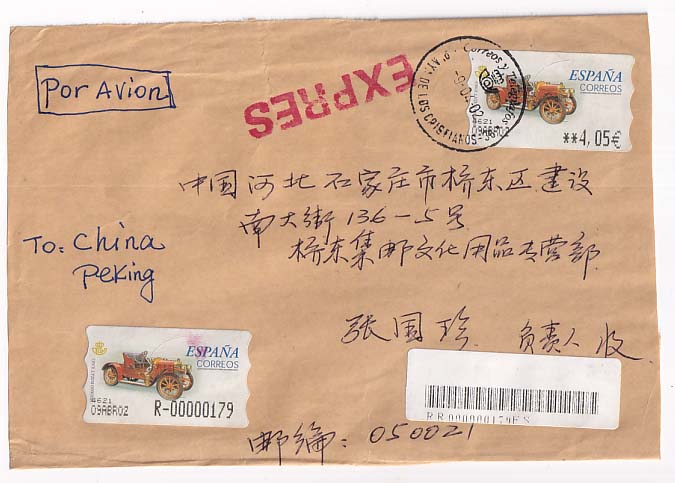 Por Avion
EXPRES
Correos y Telégrafos
DE LOS CRISTIANOS
ESPAÑA
CORREOS
8621
09ABR02
**4,05€
中国河北石家庄市桥东区建设
南大街136-5号
桥东集邮文化用品专营部
To: China
Peking
张国珍 负责人收
ESPAÑA
CORREOS
8621
09ABR02
R-00000179
RR000000179ES
邮编: 050021